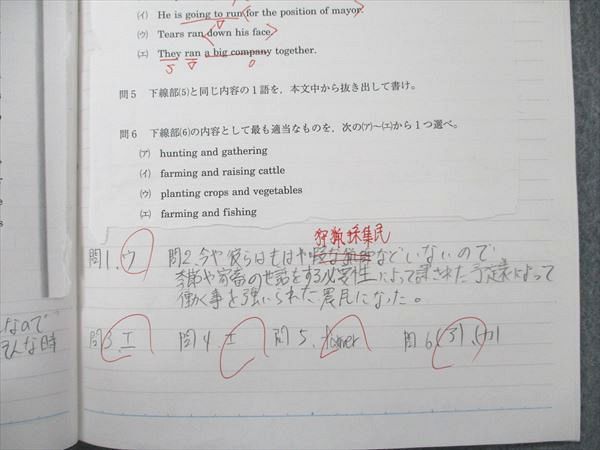 (イ) He is going to run for the position of mayor.
(ウ) Tears ran down his face.
(エ) They ran a big company together.
S V O
問5 下線部(5)と同じ内容の1語を、本文中から抜き出して書け。
問6 下線部(6)の内容として最も適当なものを、次の(ア)~(エ)から1つ選べ。
(ア) hunting and gathering
(イ) farming and raising cattle
(ウ) planting crops and vegetables
(エ) farming and fishing
狩猟採集民
問1. ウ 問2. 今や彼らはもはや などいないので
季節や家畜の世話をする必要性によって課された予定表によって
働く事を強いられた農民になった。
なので
そんな時
問3. エ 問4. エ 問5. famer 問6. (ア), (イ)